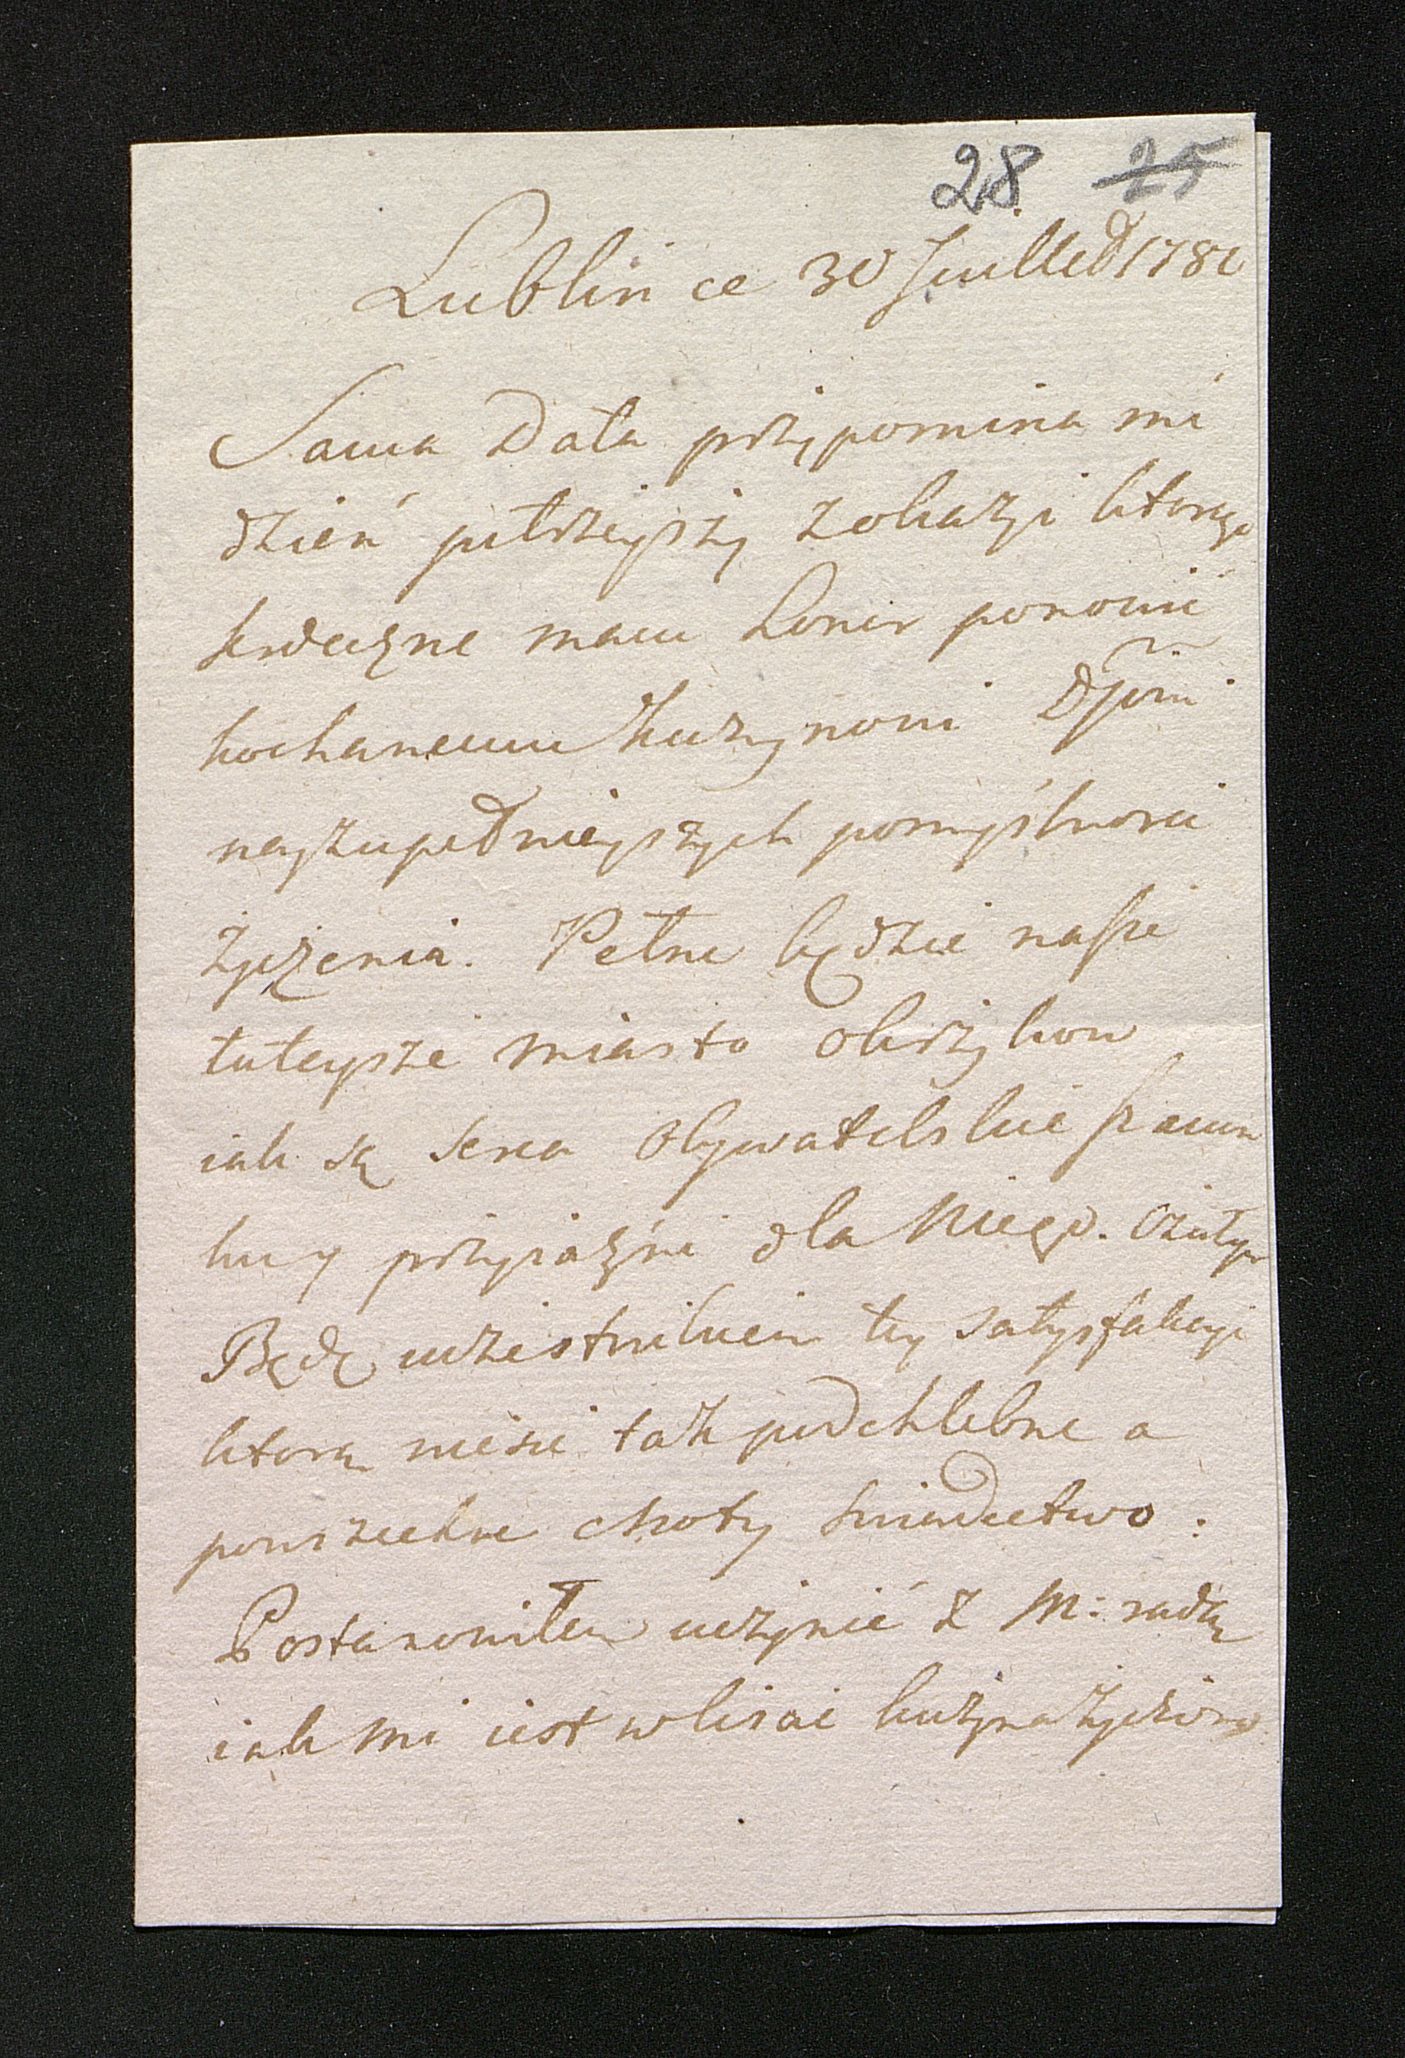 28 25
Lublin ce 30 Juillet 178
Sama Data przypomina mi
dzień jutrzeyszy z okazyi ktorego
serdeczne mam honor ponowić
kochanemu Kuzynowi
nayzupełnieyszych pomyślnosci
życzenia. Pełne będzie nasze
tuteysze miasto okrzykow
iak są serca obywatelskie szacun
ku y przyiaźni dla Niego.
Będę uczestnikiem tey satysfakcyi
ktorą niesie tak podchlebne a
powszechne cnoty swiadectwo.
Postanowiłem uczynić z M: radą
iak mi iest w liscie kuzyna